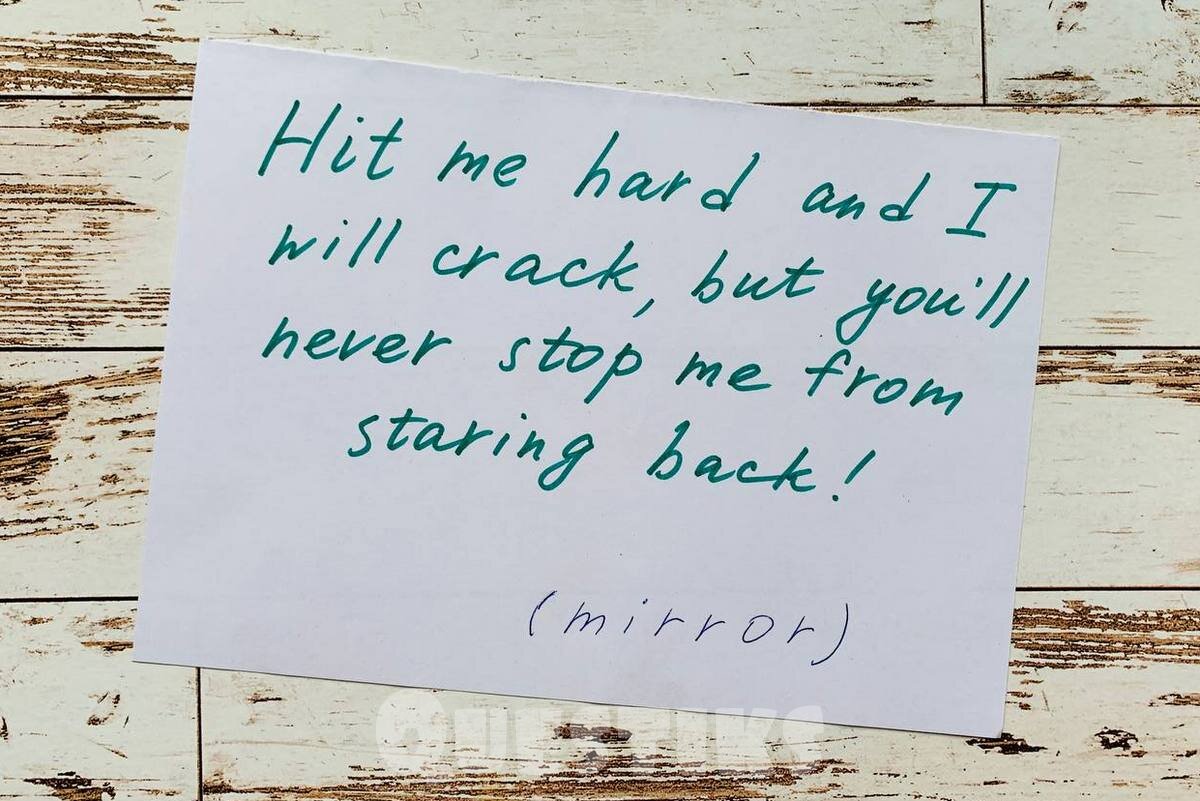 Hit me hard and I
will crack, but you'll
never stop me from
staring back!
(mirror)